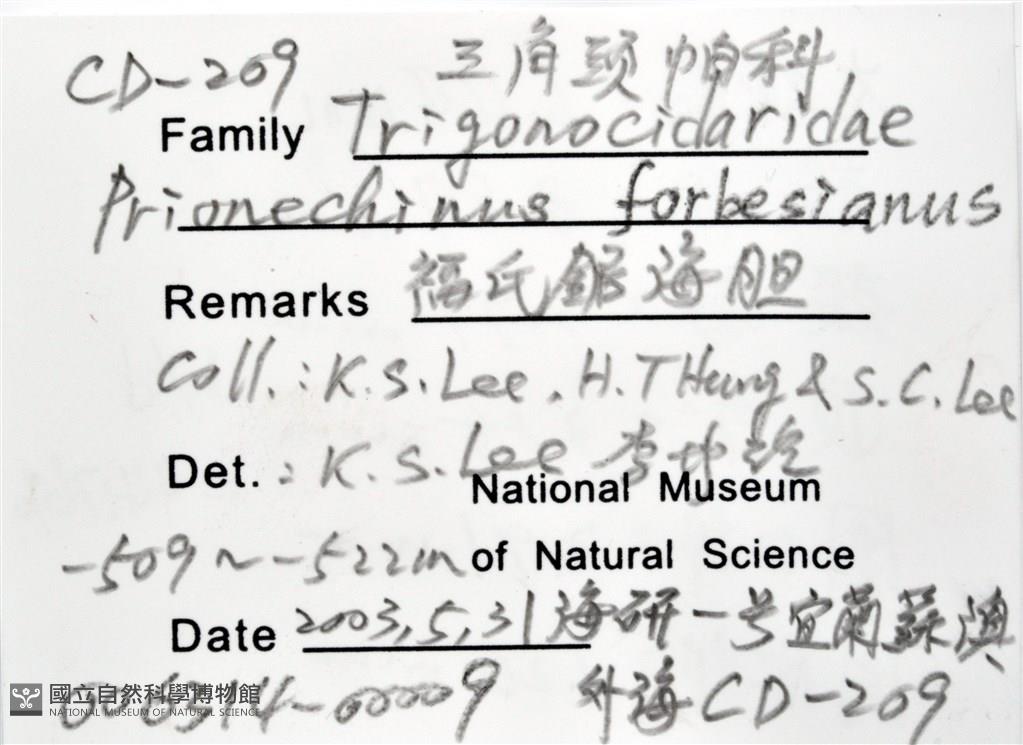 CD-209 三角頭帕科
Family Trigonocidaridae
Prionechinus forbesianus
Remarks 福氏鋸海胆
Coll.: K.S. Lee, H.T Hung & S.C. Lee
Det.: K.S. Lee 李坤瑄
National Museum
-509~-522m of Natural Science
Date 2003,5,31 海研一号宜蘭蘇澳
-00009 外海 CD-209
國立自然科學博物館
NATIONAL MUSEUM OF NATURAL SCIENCE